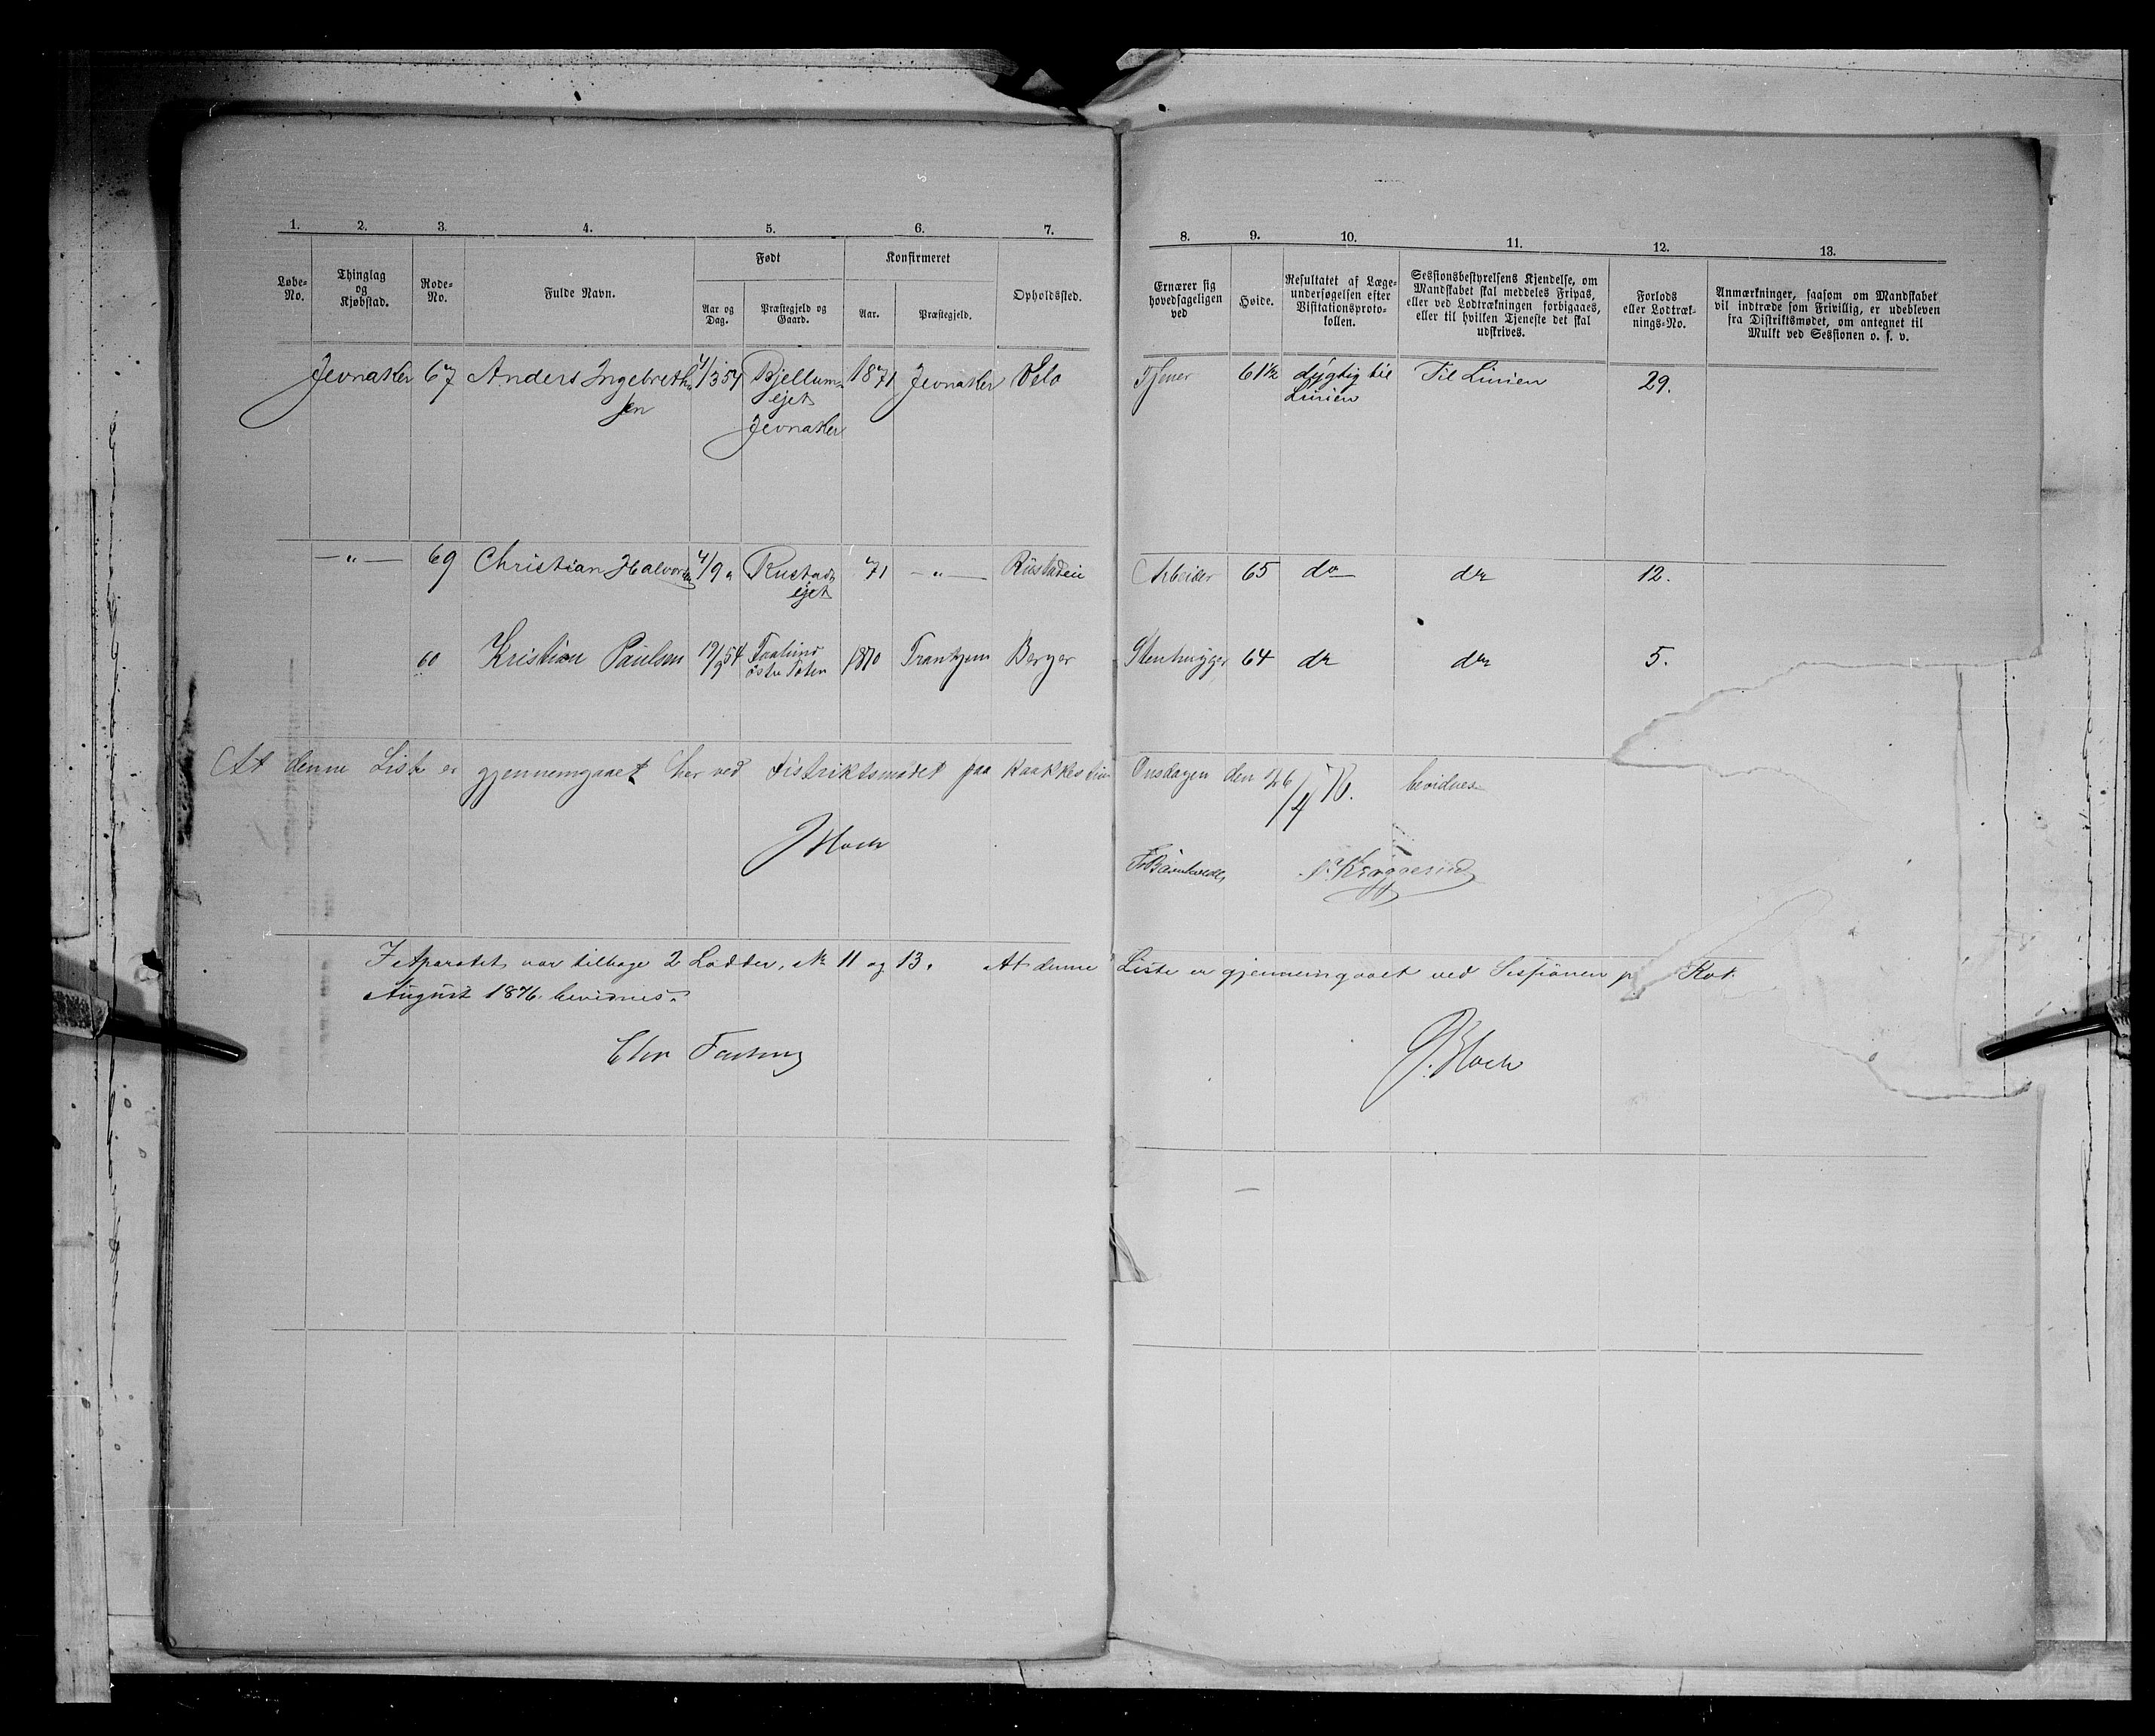 1. 2. 3. 4. 5. 6. 7. 8. 9. 10. 11. 12. 13.
Løbe-No. Thinglag og Kjøbstad. Rode-No. Fulde Navn. Født Aar og Dag. Præstegjeld og Gaard. Konfirmeret Aar. Præstegjeld. Opholdssted. Ernærer sig hovedsageligen ved Høide. Resultatet af Læge-undersøgelsen efter Visitationsproto-kollen. Sessionsbestyrelsens Kjendelse, om Mandskabet skal meddeles Fripas, eller ved Lodtrækningen forbigaaes, eller til hvilken Tjeneste det skal udskrives. Forlods eller Lodtræk-nings-No. Anmærkninger, saasom om Mandskabet vil indtræde som Frivillig, er udebleven fra Distriktsmødet, om antegnet til Mulkt ved Sessionen o. s. v.
Jevnaker 67 Anders Ingebreth- 4/3 54 Bjellum 1871 Jevnaker Velo Tjener 61½ dygtig til Til Linien 29.
sen ejet Linien
Jevnaker
—"— 69 Christian Halvorsen 4/9 " Rustad 71 —"— Rustadeie Arbeider 65 do do 12.
ejet
60 Kristian Paulsen 19/9 54 1870 Berger Stenhugger 64 do do 5.
østre Toten
At denne Liste er gjennemgaaet her ved Distriktsmødet paa Onsdagen den 26/4 76. bevidnes
J Bloch
I Aparatet var tilbage 2 Lodder, No 11 og 13. At denne Liste er gjennemgaaet ved Sessionen
August 1876. bevidnes.
J. Bloch